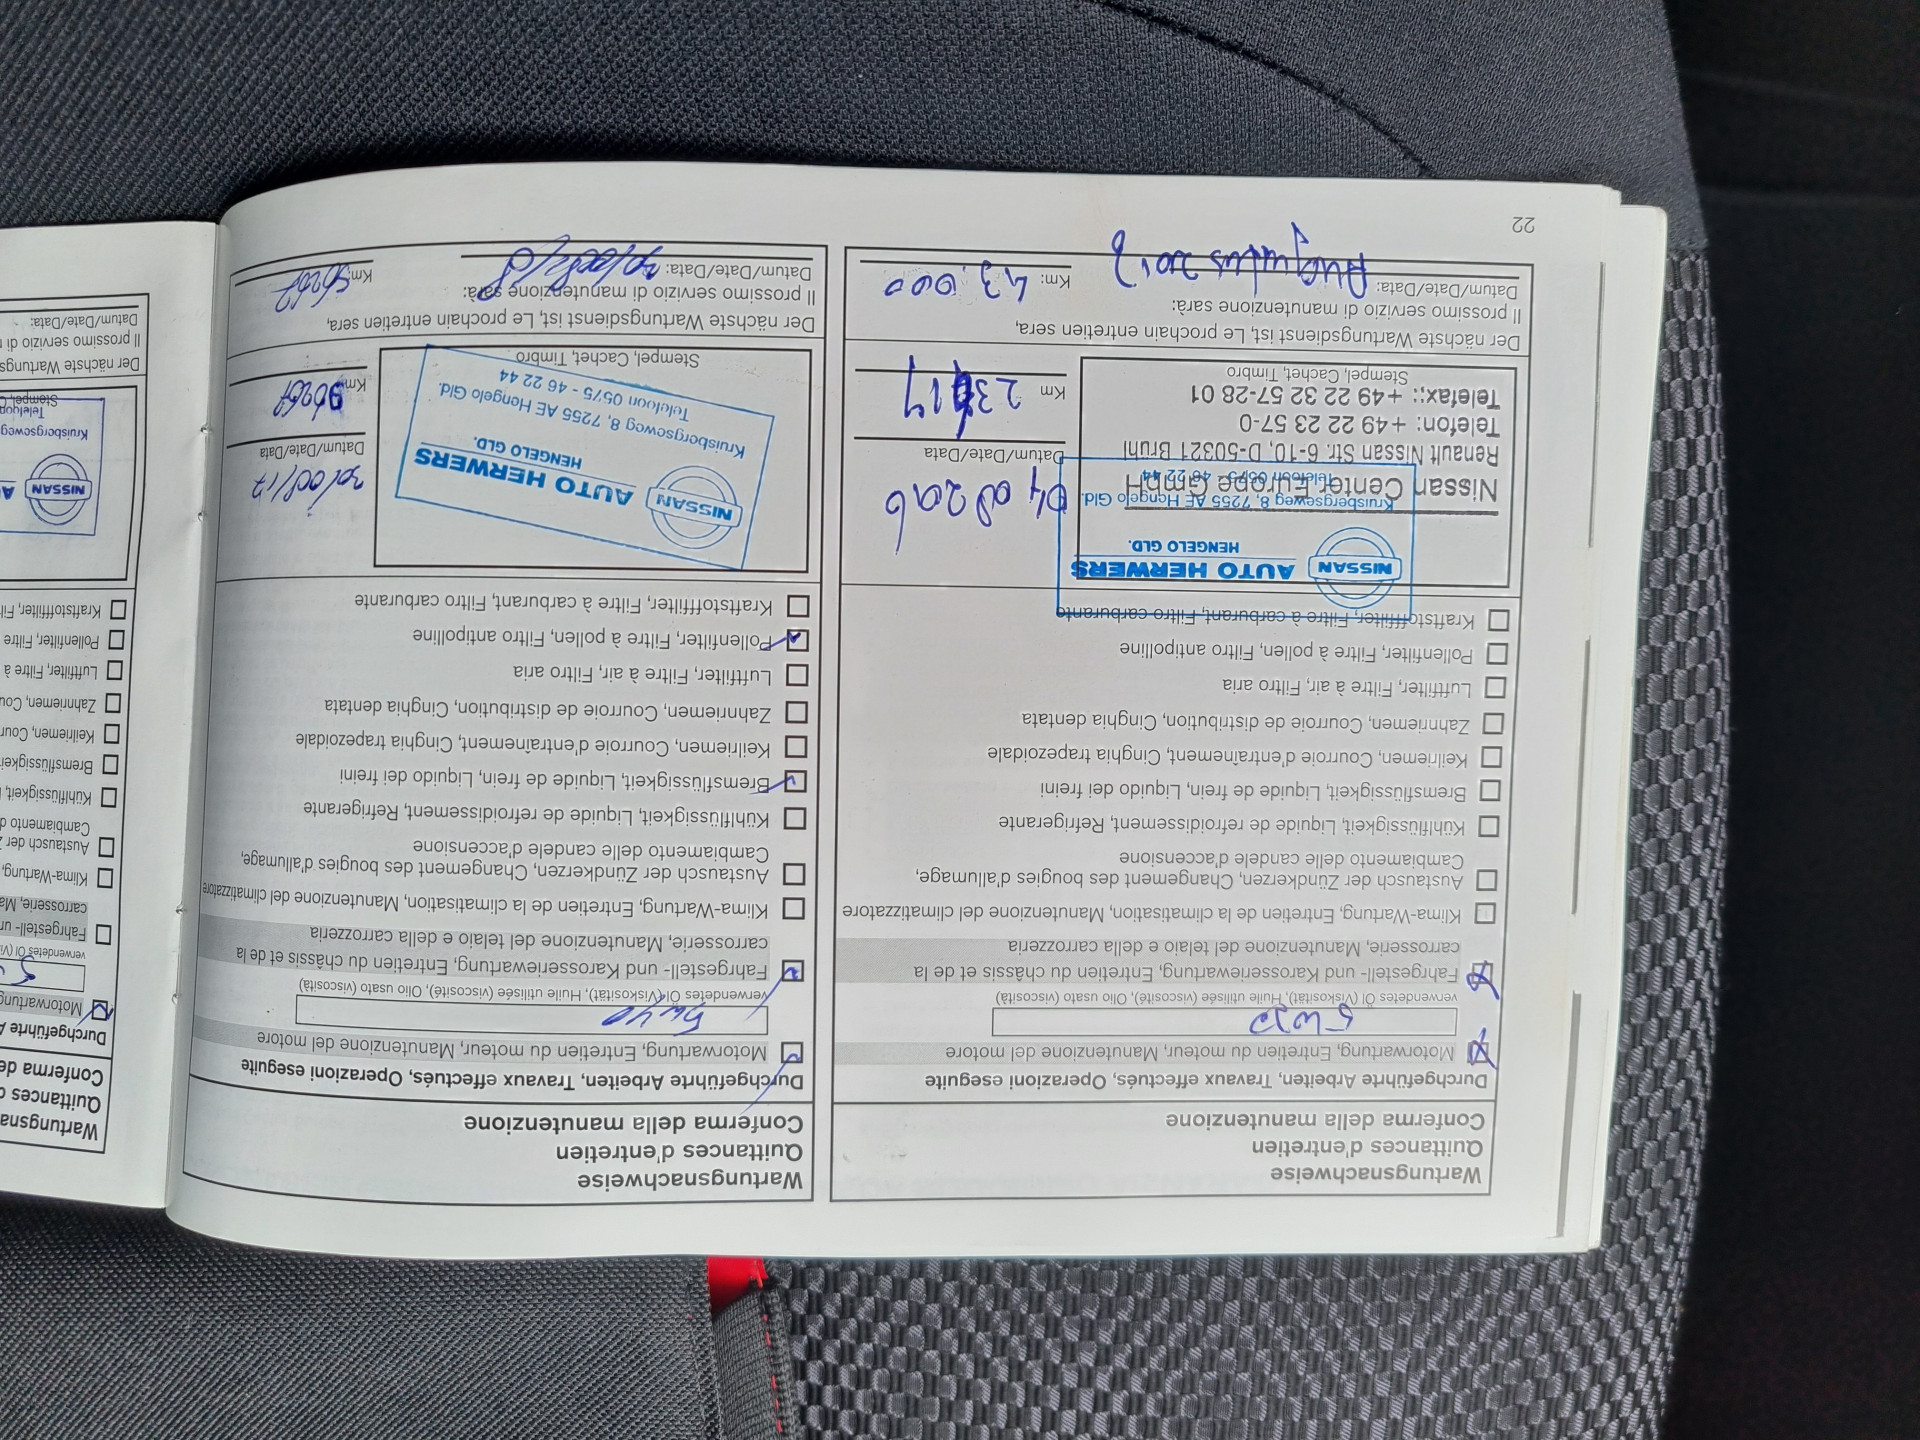 Wartungsnachweise
Quittances d'entretien
Conferma della manutenzione
Durchgeführte Arbeiten, Travaux effectués, Operazioni eseguite
Motorwartung, Entretien du moteur, Manutenzione del motore
5W30
verwendetes Öl (Viskosität), Huile utilisée (viscosité), Olio usato (viscosità)
Fahrgestell- und Karosseriewartung, Entretien du châssis et de la
carrosserie, Manutenzione del telaio e della carrozzeria
Klima-Wartung, Entretien de la climatisation, Manutenzione del climatizzatore
Austausch der Zündkerzen, Changement des bougies d'allumage,
Cambiamento delle candele d'accensione
Kühlflüssigkeit, Liquide de refroidissement, Refrigerante
Bremsflüssigkeit, Liquide de frein, Liquido dei freini
Keilriemen, Courroie d'entraînement, Cinghia trapezoidale
Zahnriemen, Courroie de distribution, Cinghia dentata
Luftfilter, Filtre à air, Filtro aria
Pollenfilter, Filtre à pollen, Filtro antipolline
Kraftstofffilter, Filtre à carburant, Filtro carburante
NISSAN
AUTO HERWERS
HENGELO GLD.
Kruisbergseweg 8, 7255 AE Hengelo Gld.
Telefoon 0575 - 46 22 44
Nissan Center Europe GmbH
Renault Nissan Str. 6-10, D-50321 Brühl
Telefon: +49 22 23 57-0
Telefax:: +49 22 32 57-28 01
Stempel, Cachet, Timbro
Datum/Date/Data
Km
Der nächste Wartungsdienst ist, Le prochain entretien sera,
Il prossimo servizio di manutenzione sarà:
Datum/Date/Data: Augustus
Km: 43.000
22
Wartungsnachweise
Quittances d'entretien
Conferma della manutenzione
Durchgeführte Arbeiten, Travaux effectués, Operazioni eseguite
Motorwartung, Entretien du moteur, Manutenzione del motore
5W40
verwendetes Öl (Viskosität), Huile utilisée (viscosité), Olio usato (viscosità)
Fahrgestell- und Karosseriewartung, Entretien du châssis et de la
carrosserie, Manutenzione del telaio e della carrozzeria
Klima-Wartung, Entretien de la climatisation, Manutenzione del climatizzatore
Austausch der Zündkerzen, Changement des bougies d'allumage,
Cambiamento delle candele d'accensione
Kühlflüssigkeit, Liquide de refroidissement, Refrigerante
Bremsflüssigkeit, Liquide de frein, Liquido dei freini
Keilriemen, Courroie d'entraînement, Cinghia trapezoidale
Zahnriemen, Courroie de distribution, Cinghia dentata
Luftfilter, Filtre à air, Filtro aria
Pollenfilter, Filtre à pollen, Filtro antipolline
Kraftstofffilter, Filtre à carburant, Filtro carburante
NISSAN
AUTO HERWERS
HENGELO GLD.
Kruisbergseweg 8, 7255 AE Hengelo Gld.
Telefoon 0575 - 46 22 44
Stempel, Cachet, Timbro
Datum/Date/Data
Km
Der nächste Wartungsdienst ist, Le prochain entretien sera,
Il prossimo servizio di manutenzione sarà:
Datum/Date/Data:
Km: 56267
Wartungsna
Quittances d
Conferma de
Durchgeführte A
Motorwartung
verwendetes Öl (Vi
Fahrgestell- un
carrosserie, Ma
Klima-Wartung,
Austausch der Z
Cambiamento d
Kühlflüssigkeit,
Bremsflüssigkei
Keilriemen, Cour
Zahnriemen, Cou
Luftfilter, Filtre à
Pollenfilter, Filtre
Kraftstofffilter, Fi
NISSAN
Kruisbergseweg
Telefoon
Stempel, C
Der nächste Wartungs
Il prossimo servizio di
Datum/Date/Data: